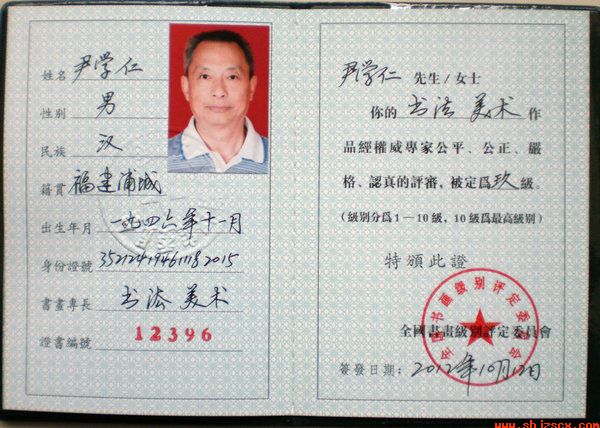 姓名 尹学仁
性别 男
民族 汉
籍貫 福建浦城
出生年月 一九四六年十一月
身份證號 352124194611182015
書畫專長 书法 美术
證書編號 12396
尹学仁 先生/女士
你的 书法 美术 作
品經權威專家公平、公正、嚴
格、認真的評審，被定爲玖級。
(級別分爲1—10級，10級爲最高級別)
特頒此證
全國書畫級別評定委員會
簽發日期：2012年10月12日
全国书画级别评定委员会
www.shjzscx.com